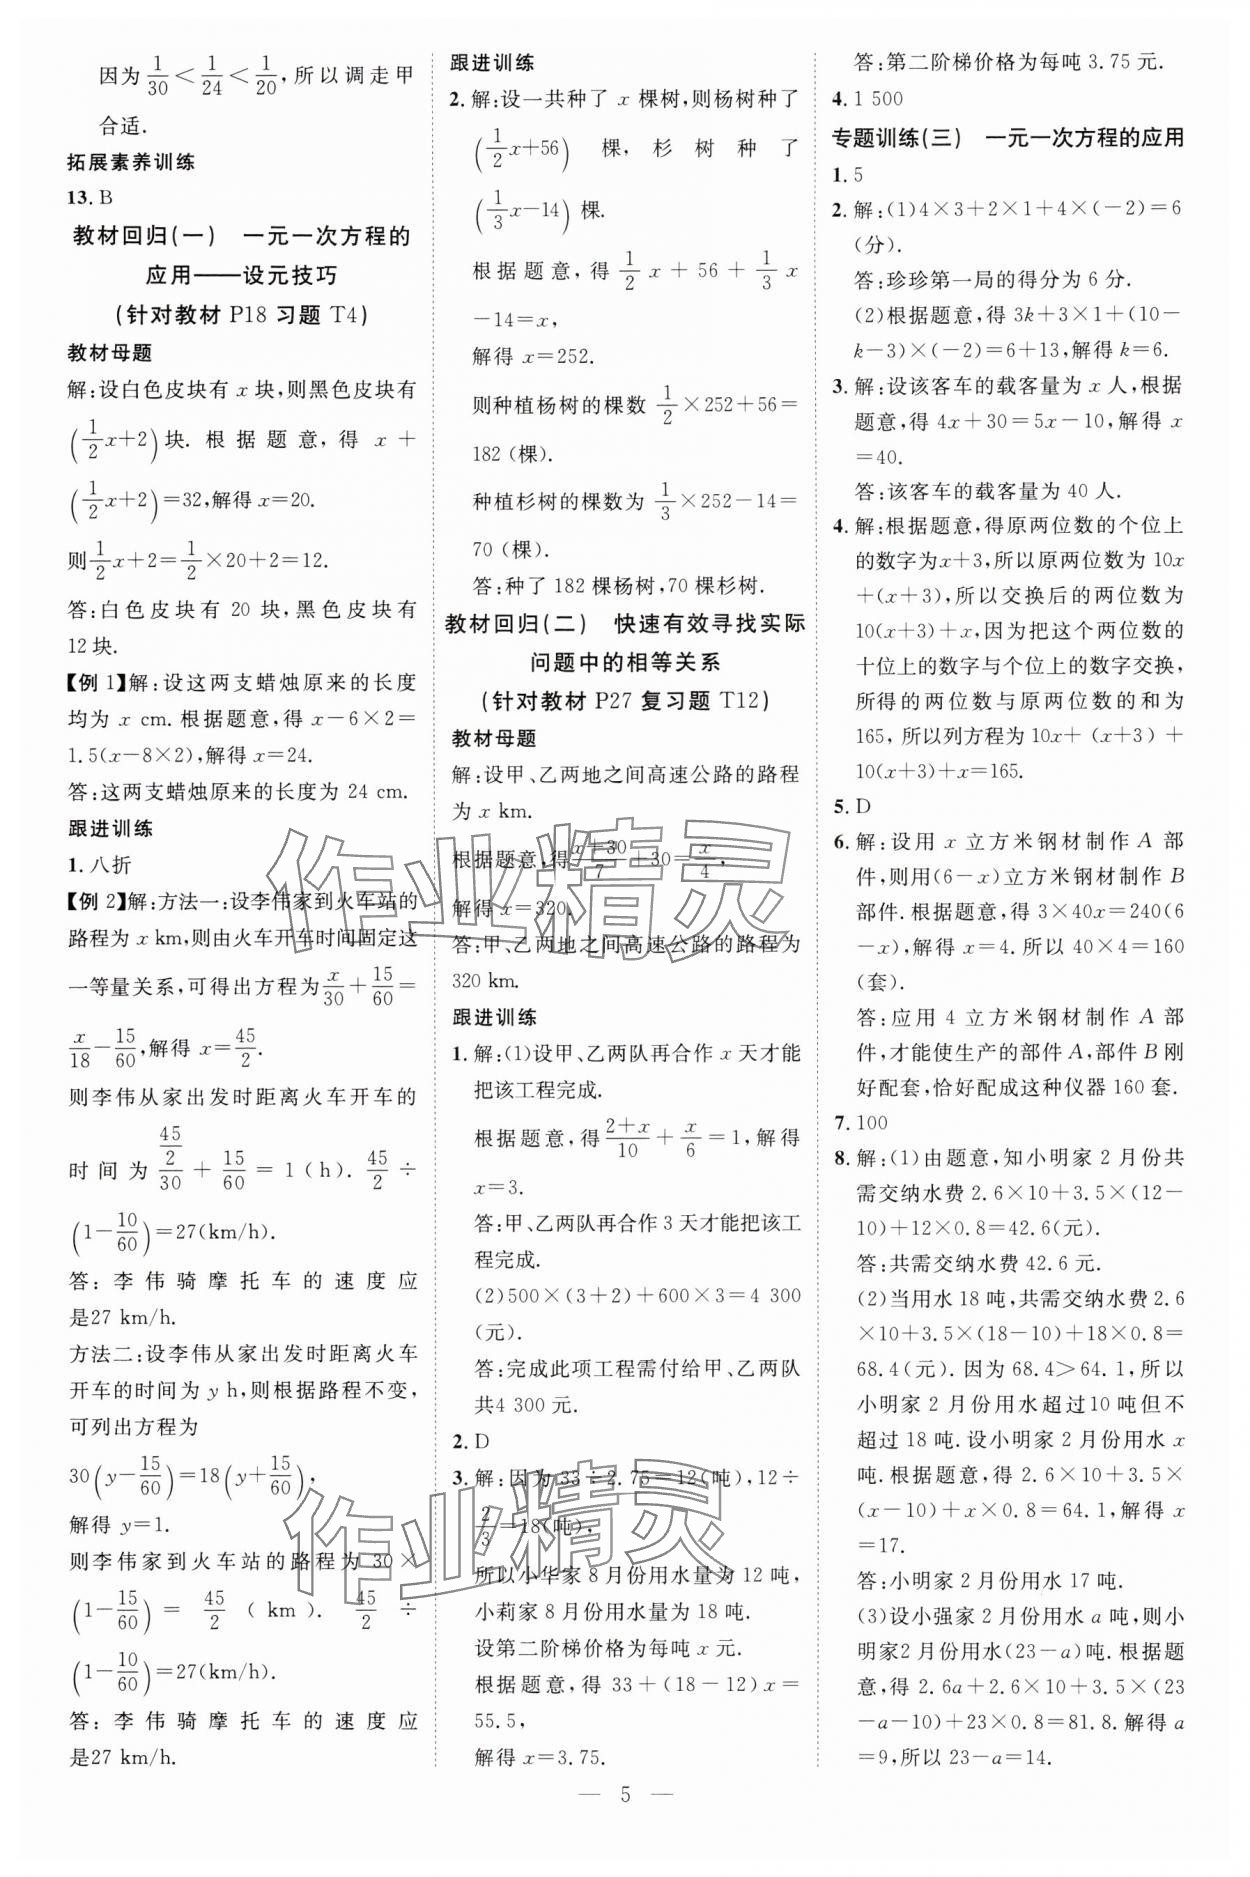 因为1/30＜1/24＜1/20,所以调走甲
合适.
拓展素养训练
13.B
教材回归(一)　一元一次方程的
应用——设元技巧
(针对教材 P18 习题 T4)
教材母题
解:设白色皮块有 x 块,则黑色皮块有
(1/2x+2)块. 根据题意,得 x+
(1/2x+2)=32,解得 x=20.
则1/2x+2=1/2×20+2=12.
答:白色皮块有 20 块,黑色皮块有
12 块.
【例 1】解:设这两支蜡烛原来的长度
均为 x cm. 根据题意,得 x-6×2=
1.5(x-8×2),解得 x=24.
答:这两支蜡烛原来的长度为 24 cm.
跟进训练
1.八折
【例 2】解:方法一:设李伟家到火车站的
路程为 x km,则由火车开车时间固定这
一等量关系,可得出方程为x/30+15/60=
x/18-15/60,解得 x=45/2.
则李伟从家出发时距离火车开车的
时间为 (45/2)/30+15/60=1(h). 45/2÷
(1-10/60)=27(km/h).
答:李伟骑摩托车的速度应
是27 km/h.
方法二:设李伟从家出发时距离火车
开车的时间为 y h,则根据路程不变,
可列出方程为
30(y-15/60)=18(y+15/60),
解得 y=1.
则李伟家到火车站的路程为 30×
(1-15/60)=45/2(km). 45/2÷
(1-10/60)=27(km/h).
答:李伟骑摩托车的速度应
是27 km/h.
跟进训练
2.解:设一共种了 x 棵树,则杨树种了
(1/2x+56)棵,杉树种了
(1/3x-14)棵.
根据题意,得1/2x+56+1/3x
-14=x,
解得 x=252.
则种植杨树的棵数1/2×252+56=
182(棵).
种植杉树的棵数为1/3×252-14=
70(棵).
答:种了 182 棵杨树,70 棵杉树.
教材回归(二)　快速有效寻找实际
问题中的相等关系
(针对教材 P27 复习题 T12)
教材母题
解:设甲、乙两地之间高速公路的路程
为 x km.
根据题意,得(x-30)/7+30=x/4,
解得 x=320.
答:甲、乙两地之间高速公路的路程为
320 km.
跟进训练
1.解:(1)设甲、乙两队再合作 x 天才能
把该工程完成.
根据题意,得(2+x)/10+x/6=1,解得
x=3.
答:甲、乙两队再合作 3 天才能把该工
程完成.
(2)500×(3+2)+600×3=4 300
(元).
答:完成此项工程需付给甲、乙两队
共4 300 元.
2.D
3.解:因为 33÷2.75=12(吨),12÷
2/3=18(吨),
所以小华家 8 月份用水量为 12 吨,
小莉家 8 月份用水量为 18 吨.
设第二阶梯价格为每吨 x 元.
根据题意,得 33+(18-12)x=
55.5,
解得 x=3.75.
答:第二阶梯价格为每吨 3.75 元.
4.1 500
专题训练(三)　一元一次方程的应用
1.5
2.解:(1)4×3+2×1+4×(-2)=6
(分).
答:珍珍第一局的得分为 6 分.
(2)根据题意,得 3k+3×1+(10-
k-3)×(-2)=6+13,解得 k=6.
3.解:设该客车的载客量为 x 人,根据
题意,得 4x+30=5x-10,解得 x
=40.
答:该客车的载客量为 40 人.
4.解:根据题意,得原两位数的个位上
的数字为x+3,所以原两位数为 10x
+(x+3),所以交换后的两位数为
10(x+3)+x,因为把这个两位数的
十位上的数字与个位上的数字交换,
所得的两位数与原两位数的和为
165,所以列方程为 10x+(x+3)+
10(x+3)+x=165.
5.D
6.解:设用 x 立方米钢材制作 A 部
件,则用(6-x)立方米钢材制作 B
部件. 根据题意,得 3×40x=240(6
-x),解得 x=4. 所以 40×4=160
(套).
答:应用 4 立方米钢材制作 A 部
件,才能使生产的部件 A,部件 B 刚
好配套,恰好配成这种仪器 160 套.
7.100
8.解:(1)由题意,知小明家 2 月份共
需交纳水费 2.6×10+3.5×(12-
10)+12×0.8=42.6(元).
答:共需交纳水费 42.6 元.
(2)当用水 18 吨,共需交纳水费 2.6
×10+3.5×(18-10)+18×0.8=
68.4(元). 因为 68.4＞64.1,所以
小明家 2 月份用水超过10 吨但不
超过 18 吨. 设小明家 2 月份用水 x
吨. 根据题意,得 2.6×10+3.5×
(x-10)+x×0.8=64.1,解得 x
=17.
答:小明家 2 月份用水 17 吨.
(3)设小强家 2 月份用水 a 吨,则小
明家2 月份用水(23-a)吨. 根据题
意,得 2.6a+2.6×10+3.5×(23
-a-10)+23×0.8=81.8. 解得 a
=9,所以 23-a=14.
作业精灵
作业精灵
— 5 —